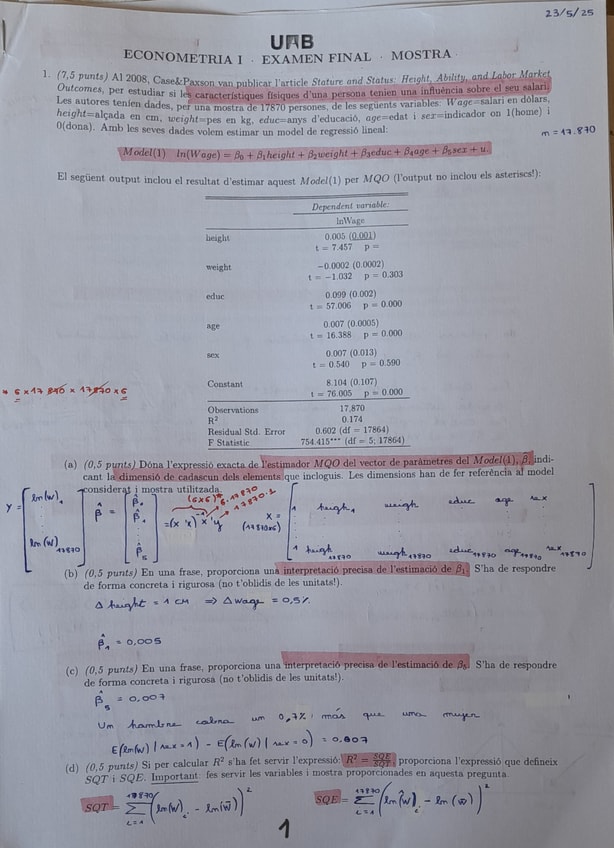 23/5/25
UAB
ECONOMETRIA I · EXAMEN FINAL · MOSTRA
1. (7,5 punts) Al 2008, Case&Paxson van publicar l'article Stature and Status: Height, Ability, and Labor Market
Outcomes, per estudiar si les característiques físiques d'una persona tenien una influència sobre el seu salari.
Les autores tenien dades, per una mostra de 17870 persones, de les següents variables: Wage=salari en dòlars,
height=alçada en cm, weight=pes en kg, educ=anys d'educació, age=edat i sex=indicador on 1(home) i
0(dona). Amb les seves dades volem estimar un model de regressió lineal:
n = 17.870
Model(1) ln(Wage) = β0 + β1height + β2weight + β3educ + β4age + β5sex + u.
El següent output inclou el resultat d'estimar aquest Model(1) per MQO (l'output no inclou els asteriscs!):
Dependent variable:
lnWage
height 0.005 (0.001)
t = 7.457 p =
weight −0.0002 (0.0002)
t = −1.032 p = 0.303
educ 0.099 (0.002)
t = 57.006 p = 0.000
age 0.007 (0.0005)
t = 16.388 p = 0.000
sex 0.007 (0.013)
t = 0.540 p = 0.590
Constant 8.104 (0.107)
t = 76.005 p = 0.000
* 6 x 17870 x 17870 x 6
Observations 17,870
R² 0.174
Residual Std. Error 0.602 (df = 17864)
F Statistic 754.415*** (df = 5; 17864)
(a) (0,5 punts) Dóna l'expressió exacta de l'estimador MQO del vector de paràmetres del Model(1), β, indi-
cant la dimensió de cadascun dels elements que incloguis. Les dimensions han de fer referència al model
considerat i mostra utilitzada.
(6x6)*
6·17870
17870·1
Y = [ln(w)1 ln(w)17870] β̂ = [β̂0 β̂1 β̂5] = (X'X)⁻¹ X'y X = (17870x6)
1 heigh1 weigh educ age sex
1 heigh17870 weigh17870 educ17870 age17870 sex17870
(b) (0,5 punts) En una frase, proporciona una interpretació precisa de l'estimació de β1. S'ha de respondre
de forma concreta i rigurosa (no t'oblidis de les unitats!).
Δ height = 1 cm ⇒ Δ wage = 0,5%
β̂1 = 0,005
(c) (0,5 punts) En una frase, proporciona una interpretació precisa de l'estimació de β5. S'ha de respondre
de forma concreta i rigurosa (no t'oblidis de les unitats!).
β̂5 = 0,007
Un hombre cobra un 0,7% más que una mujer
E(ln(w) | sex = 1) - E(ln(w) | sex = 0) = 0,007
(d) (0,5 punts) Si per calcular R² s'ha fet servir l'expressió: R² = SQE/SQT proporciona l'expressió que defineix
SQT i SQE. Important: fes servir les variables i mostra proporcionades en aquesta pregunta.
SQT = Σ 17870 i=1 (ln(w)i - ln(w̄))² SQE = Σ 17870 i=1 (ln(ŵ)i - ln(w̄))²
1